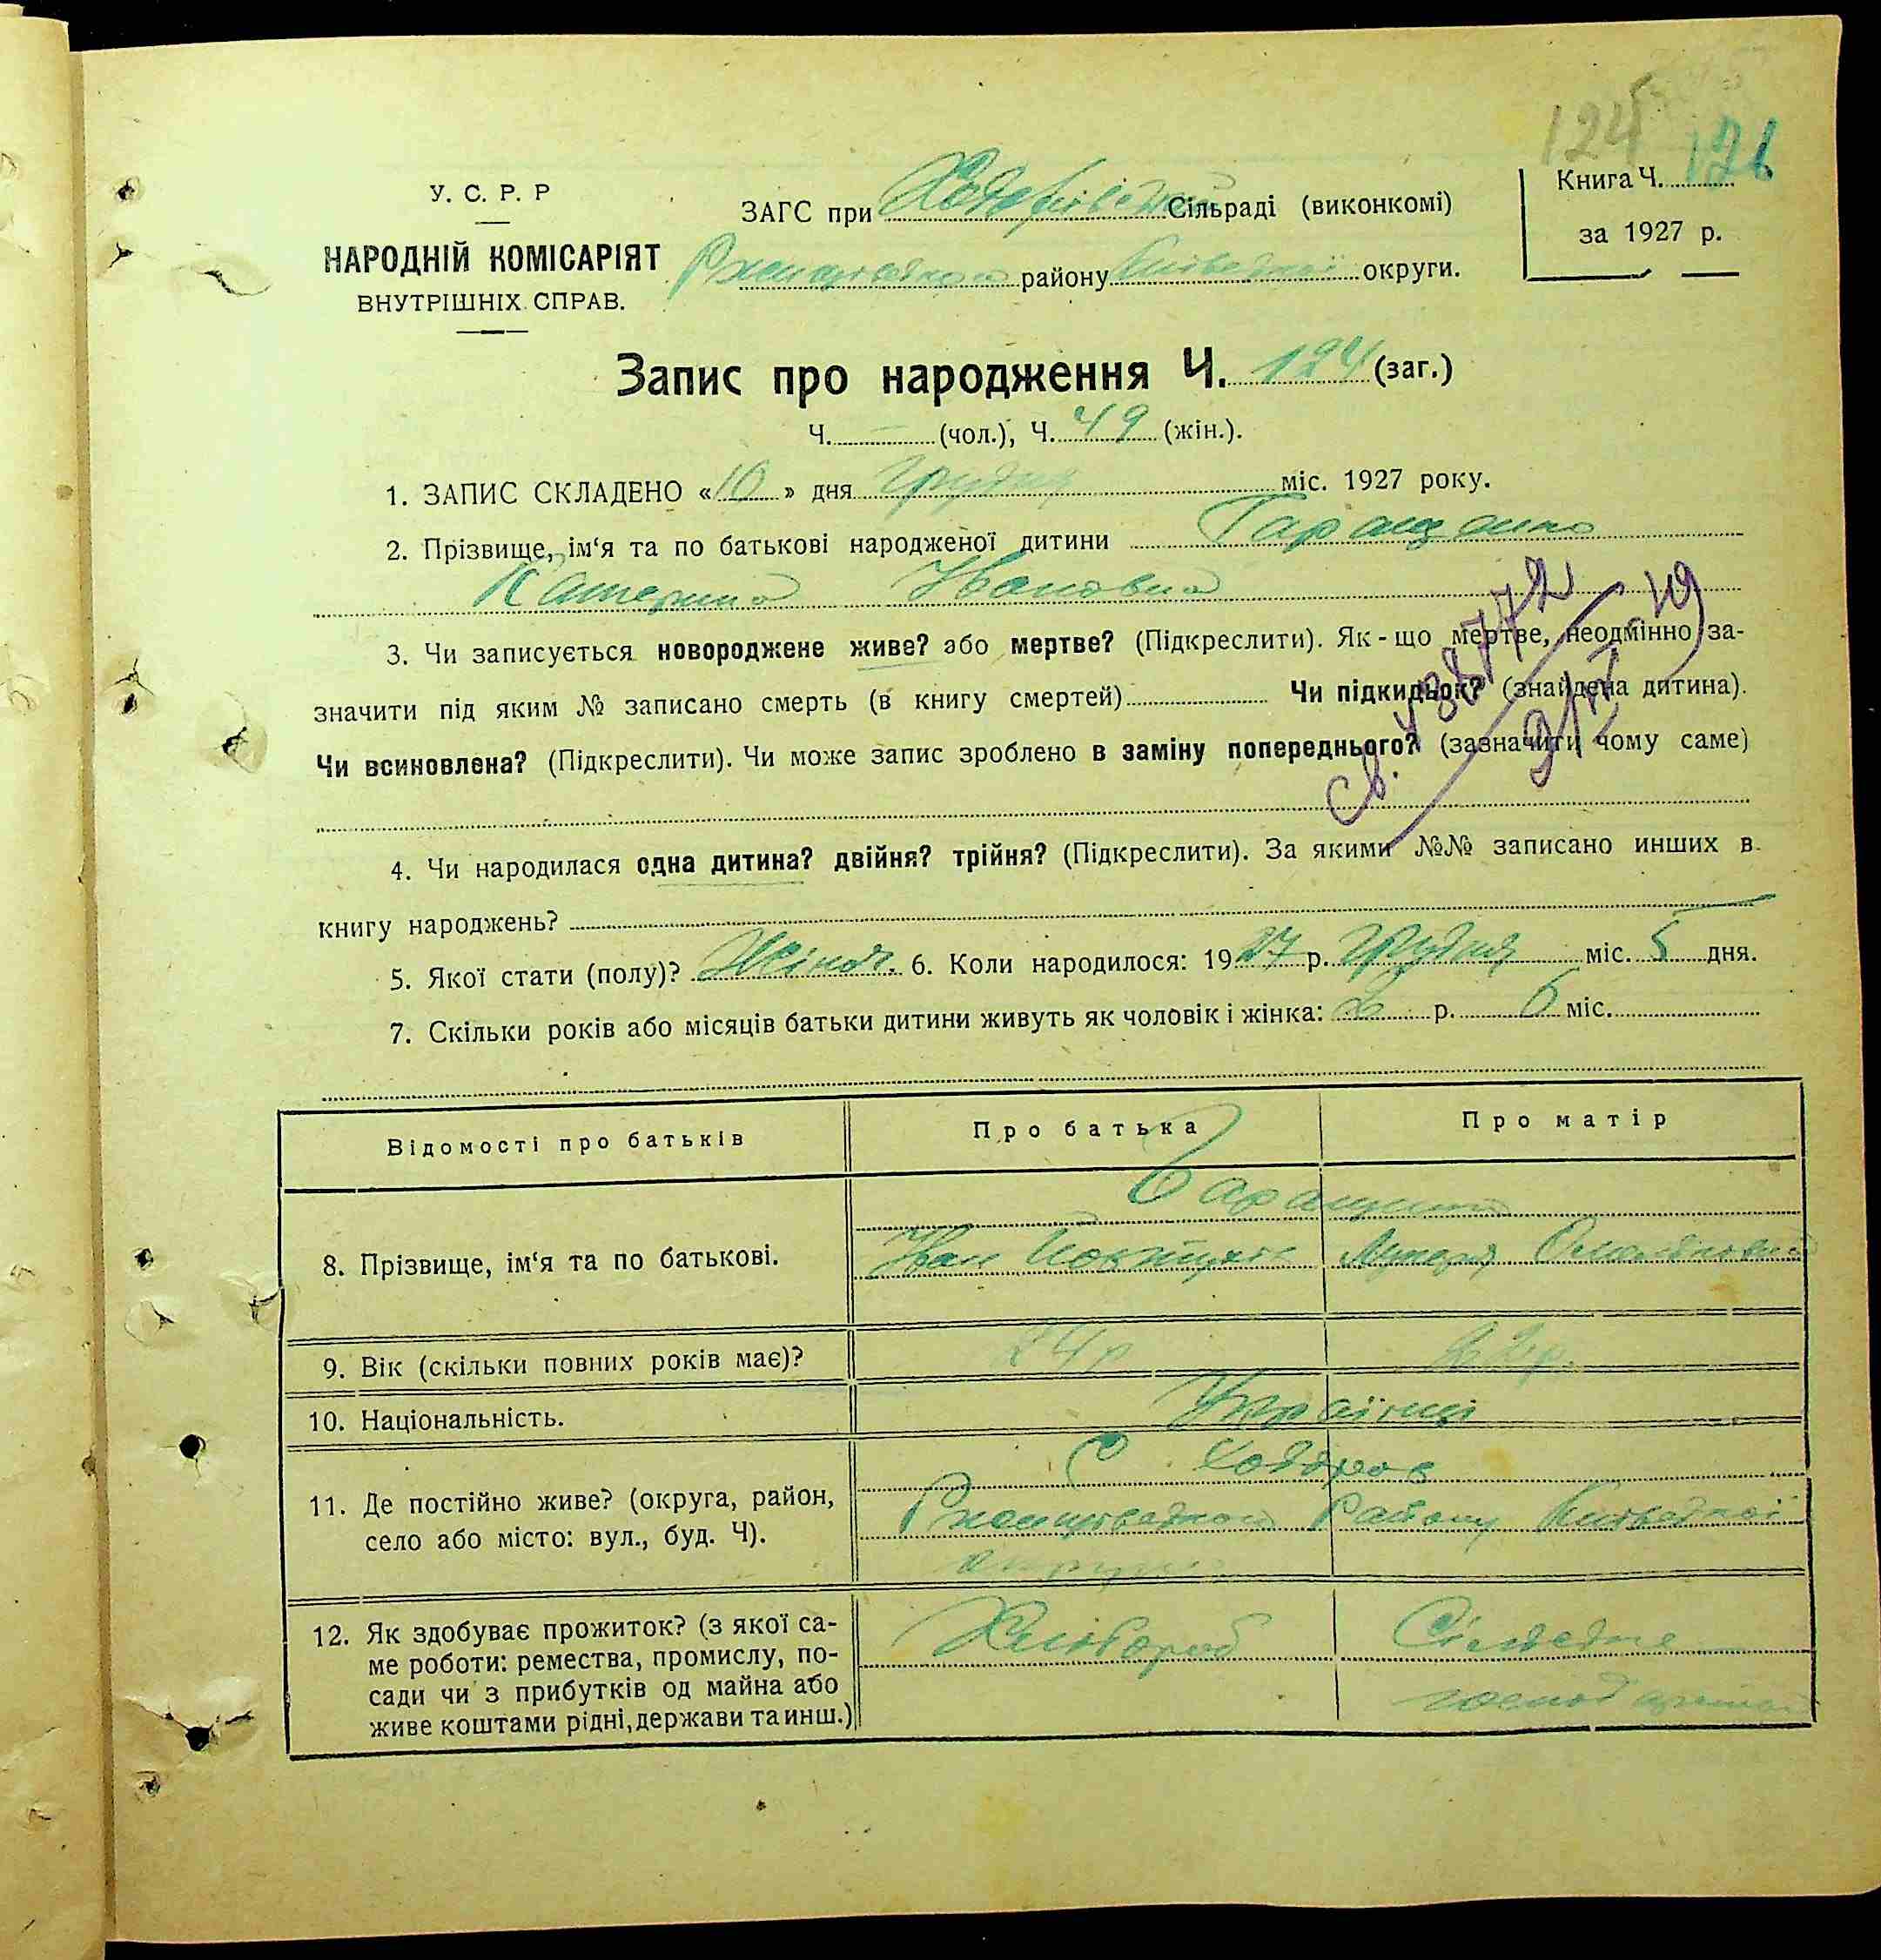 124 121
У. С. Р. Р
НАРОДНІЙ КОМІСАРІЯТ
ВНУТРІШНІХ СПРАВ.
ЗАГС при Ходорівській Сільраді (виконкомі)
Ржищівського району Київської округи.
Книга Ч.
за 1927 р.
Запис про народження Ч. 124 (заг.)
Ч. — (чол.), Ч. 49 (жін.).
1. ЗАПИС СКЛАДЕНО «10» дня Грудня міс. 1927 року.
2. Прізвище, ім‘я та по батькові народженої дитини Таращенко
Катерина Івановна
3. Чи записується новороджене живе? або мертве? (Підкреслити). Як-що мертве, неодмінно за-
значити під яким № записано смерть (в книгу смертей) Чи підкидьок? (знайдена дитина).
Чи всиновлена? (Підкреслити). Чи може запис зроблено в заміну попереднього? (зазначити чому саме)
4. Чи народилася одна дитина? двійня? трійня? (Підкреслити). За якими №№ записано инших в
книгу народжень?
5. Якої стати (полу)? Жіноч. 6. Коли народилося: 1927 р. Грудня міс. 5 дня.
7. Скільки років або місяців батьки дитини живуть як чоловік і жінка: 2 р. 6 міс.
Відомості про батьків
Про батька
Про матір
8. Прізвище, ім‘я та по батькові.
Іван
9. Вік (скільки повних років має)?
24 р
22 р.
10. Національність.
Українці
11. Де постійно живе? (округа, район,
село або місто: вул., буд. Ч).
С. Ходоров
Ржищівського Району Київської
округи
12. Як здобуває прожиток? (з якої са-
ме роботи: ремества, промислу, по-
сади чи з прибутків од майна або
живе коштами рідні, держави та инш.)
Хлібороб
Сільське
господарство